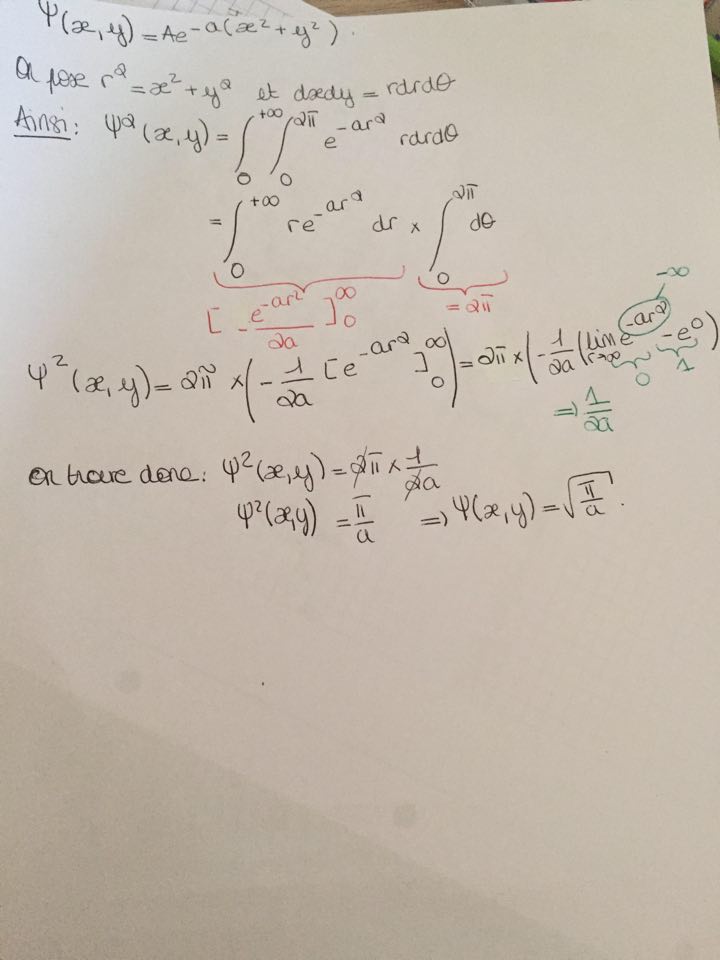 Ψ(x,y) = Ae^-a(x²+y²).
On pose r² = x² + y² et dxdy = rdrdθ
Ainsi: Ψ²(x,y) = ∫₀^+∞ ∫₀^2π e^-ar² rdrdθ
= ∫₀^+∞ re^-ar² dr × ∫₀^2π dθ
[- e^-ar²/2a]₀^∞ = 2π
-∞
Ψ²(x,y) = 2π × (-1/2a [e^-ar²]₀^∞) = 2π × (-1/2a (lim r→∞ e^-ar² - e⁰)
0 1
=> 1/2a
On trouve donc: Ψ²(x,y) = 2π × 1/2a
Ψ²(x,y) = π/a => Ψ(x,y) = √(π/a).